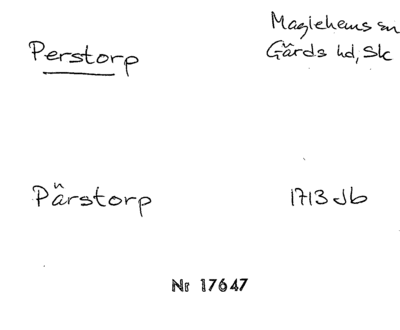 Perstorp
Maglehems sn
Gärds hd, Sk
Pärstorp
1713 Jb
Nr 17647